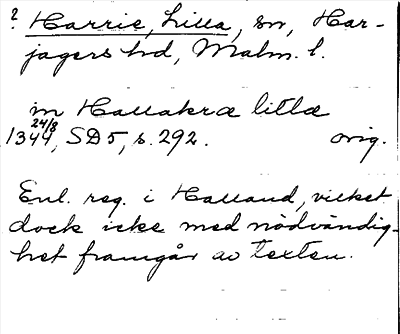 ? Harrie, Lilla, sn, Har-
jagers hd, Malm. l.
in Hallakræ litlæ
24/8
1344, SD 5, s. 292. orig.
Enl. reg. i Halland, vilket
dock icke med nödvändig-
het framgår av texten.